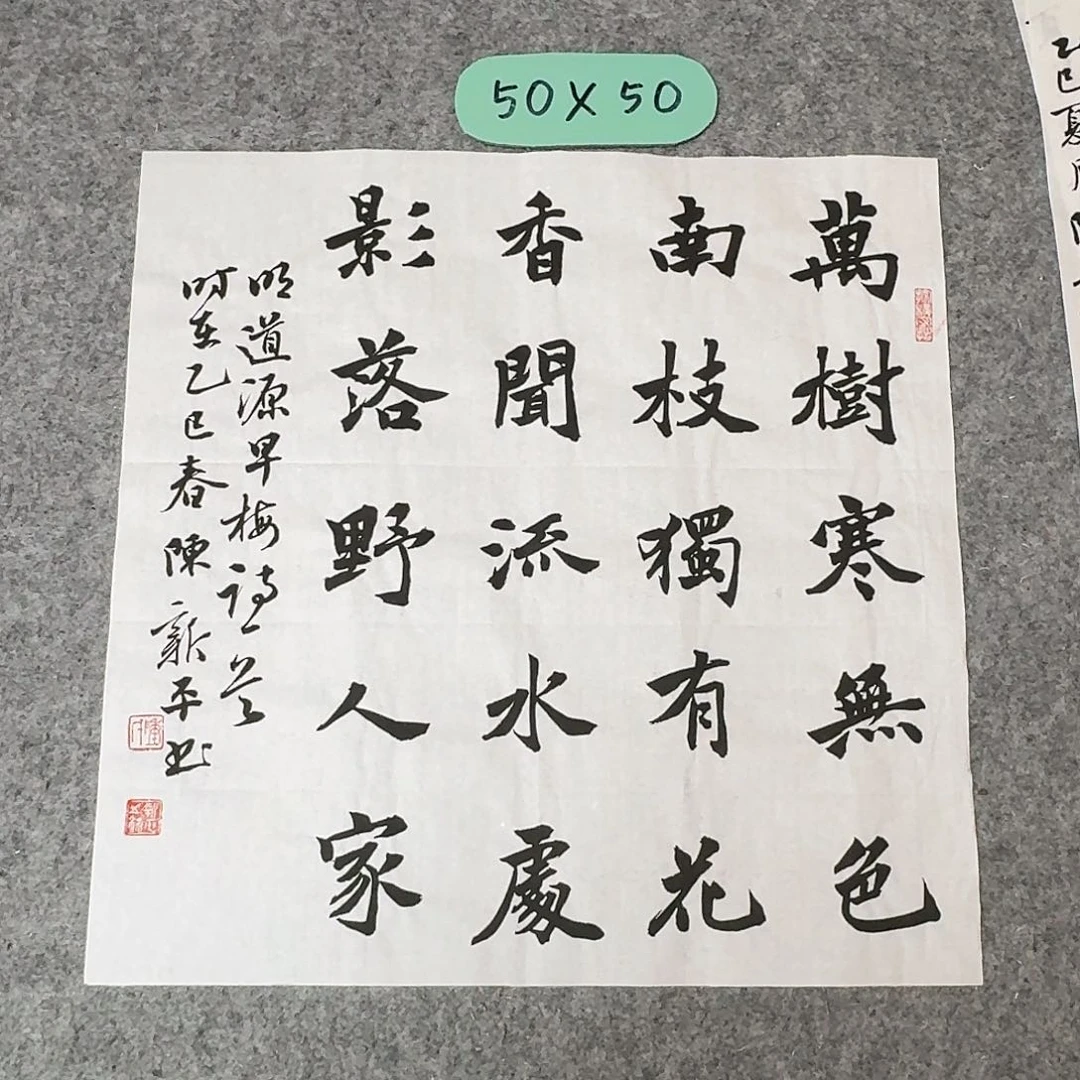 50X50
萬樹寒無色
南枝獨有花
香聞流水處
影落野人家
明道源早梅詩一首
时在乙巳春陳新平书
乙巳夏月陳